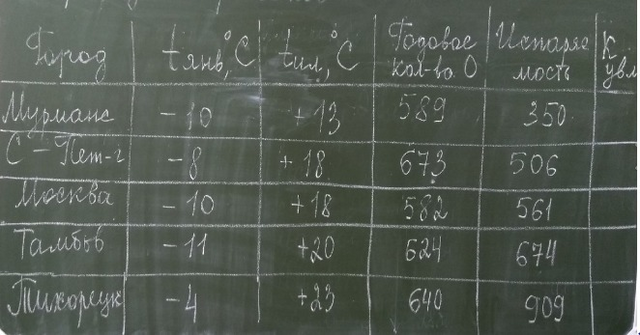 Город tянв,°C tил,°C Годовое кол-во О Испаряемость К увл
Мурманс -10 +13 589 350
С-Пет-г -8 +18 673 506
Москва -10 +18 582 561
Тамбов -11 +20 624 674
Тихорецк -4 +23 640 909